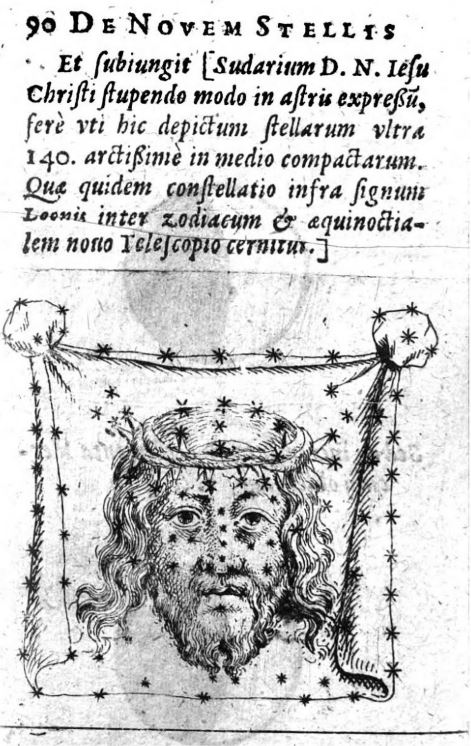 90 DE NOVEM STELLIS
Et ſubiungit [Sudarium D. N. Ieſu
Chriſti ſtupendo modo in aſtris expreßũ,
ferè vti hic depictum ſtellarum vltra
140. arctißimè in medio compactarum.
Quæ quidem conſtellatio infra ſignum
Leonis inter zodiacum & æquinoctia-
lem nouo Teleſcopio cernitur.]